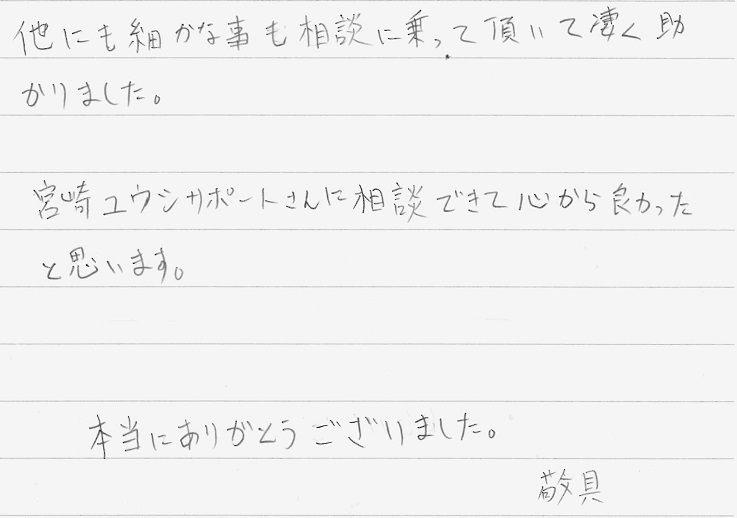 他にも細かな事も相談に乗って頂いて凄く助
かりました。
宮崎ユウシサポートさんに相談できて心から良かった
と思います。
本当にありがとうございました。
敬具